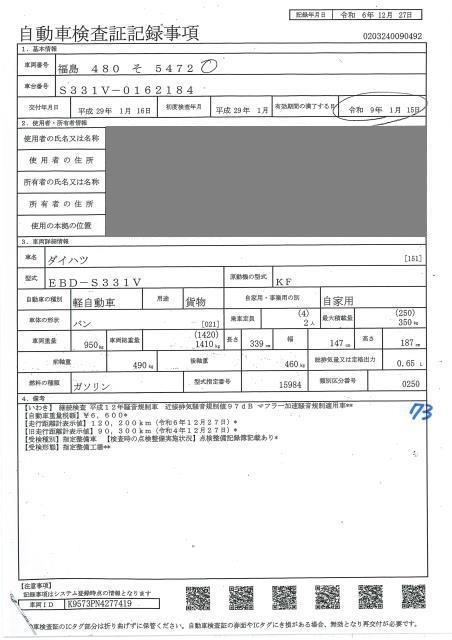 記録年月日 令和 6年12月27日
自動車検査証記録事項
0203240090492
1．基本情報
車両番号 福島 480 そ 5472
車台番号 S331V-0162184
交付年月日 平成29年 1月16日 初度検査年月 平成29年 1月 有効期間の満了する日 令和 9年 1月15日
2．使用者・所有者情報
使用者の氏名又は名称
使用者の住所
所有者の氏名又は名称
所有者の住所
使用の本拠の位置
3．車両詳細情報
車名 ダイハツ [151]
型式 EBD-S331V 原動機の型式 KF
自動車の種別 軽自動車 用途 貨物 自家用・事業用の別 自家用
車体の形状 バン [021] 乗車定員 (4) 2人 最大積載量 (250) 350kg
車両重量 950kg 車両総重量 (1420) 1410kg 長さ 339cm 幅 147cm 高さ 187cm
前軸重 490kg 後軸重 460kg 総排気量又は定格出力 0.65L
燃料の種類 ガソリン 型式指定番号 15984 類別区分番号 0250
4．備考
73
【いわき】 継続検査 平成12年騒音規制車 近接排気騒音規制値97dB マフラー加速騒音規制適用車**
【自動車重量税額】￥6,600*
【走行距離計表示値】120,200km（令和6年12月27日）*
【旧走行距離計表示値】90,300km（令和4年12月27日）*
【受検種別】指定整備車 【検査時の点検整備実施状況】点検整備記録簿記載あり*
【受検形態】指定整備工場**
【注意事項】
記録事項はシステム登録時点の情報となります
車両ID K9573PN4277419
車検査証のICタグ部分は折り曲げずに保管ください。自動車検査証の券面やICタグにき損がある場合、無効となり再交付が必要です。